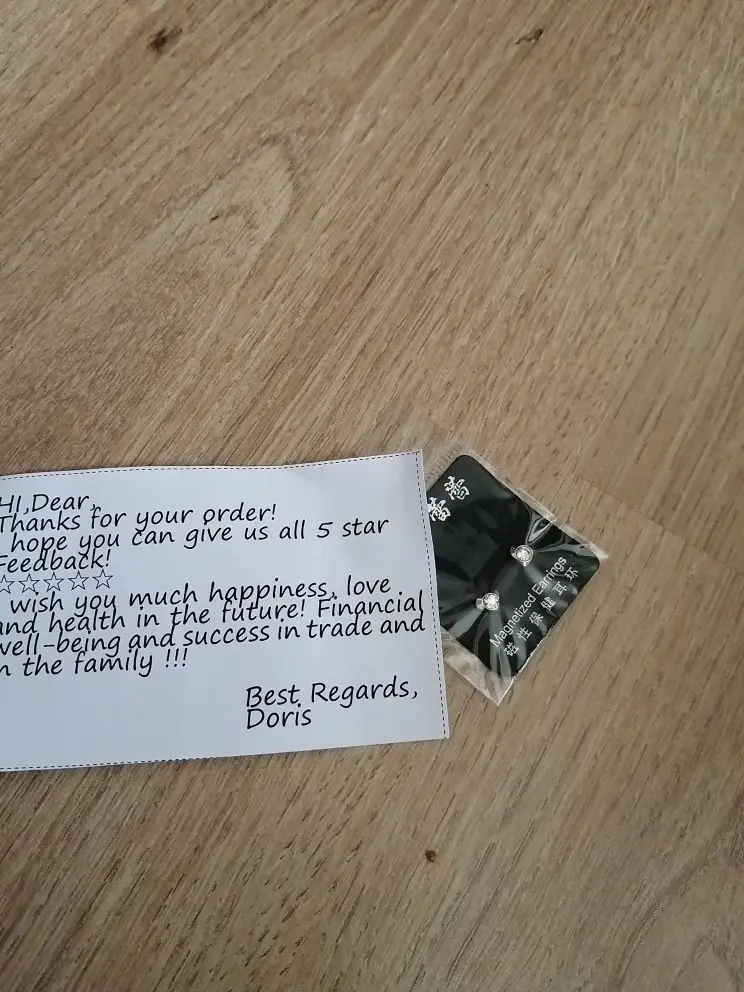 HI,Dear,
Thanks for your order!
hope you can give us all 5 star
Feedback!
☆☆☆☆☆
wish you much happiness, love
and health in the future! Financial
well-being and success in trade and
n the family !!!
Best Regards,
Doris
蕾蕾
Magnetized Earrings
磁性保健耳环